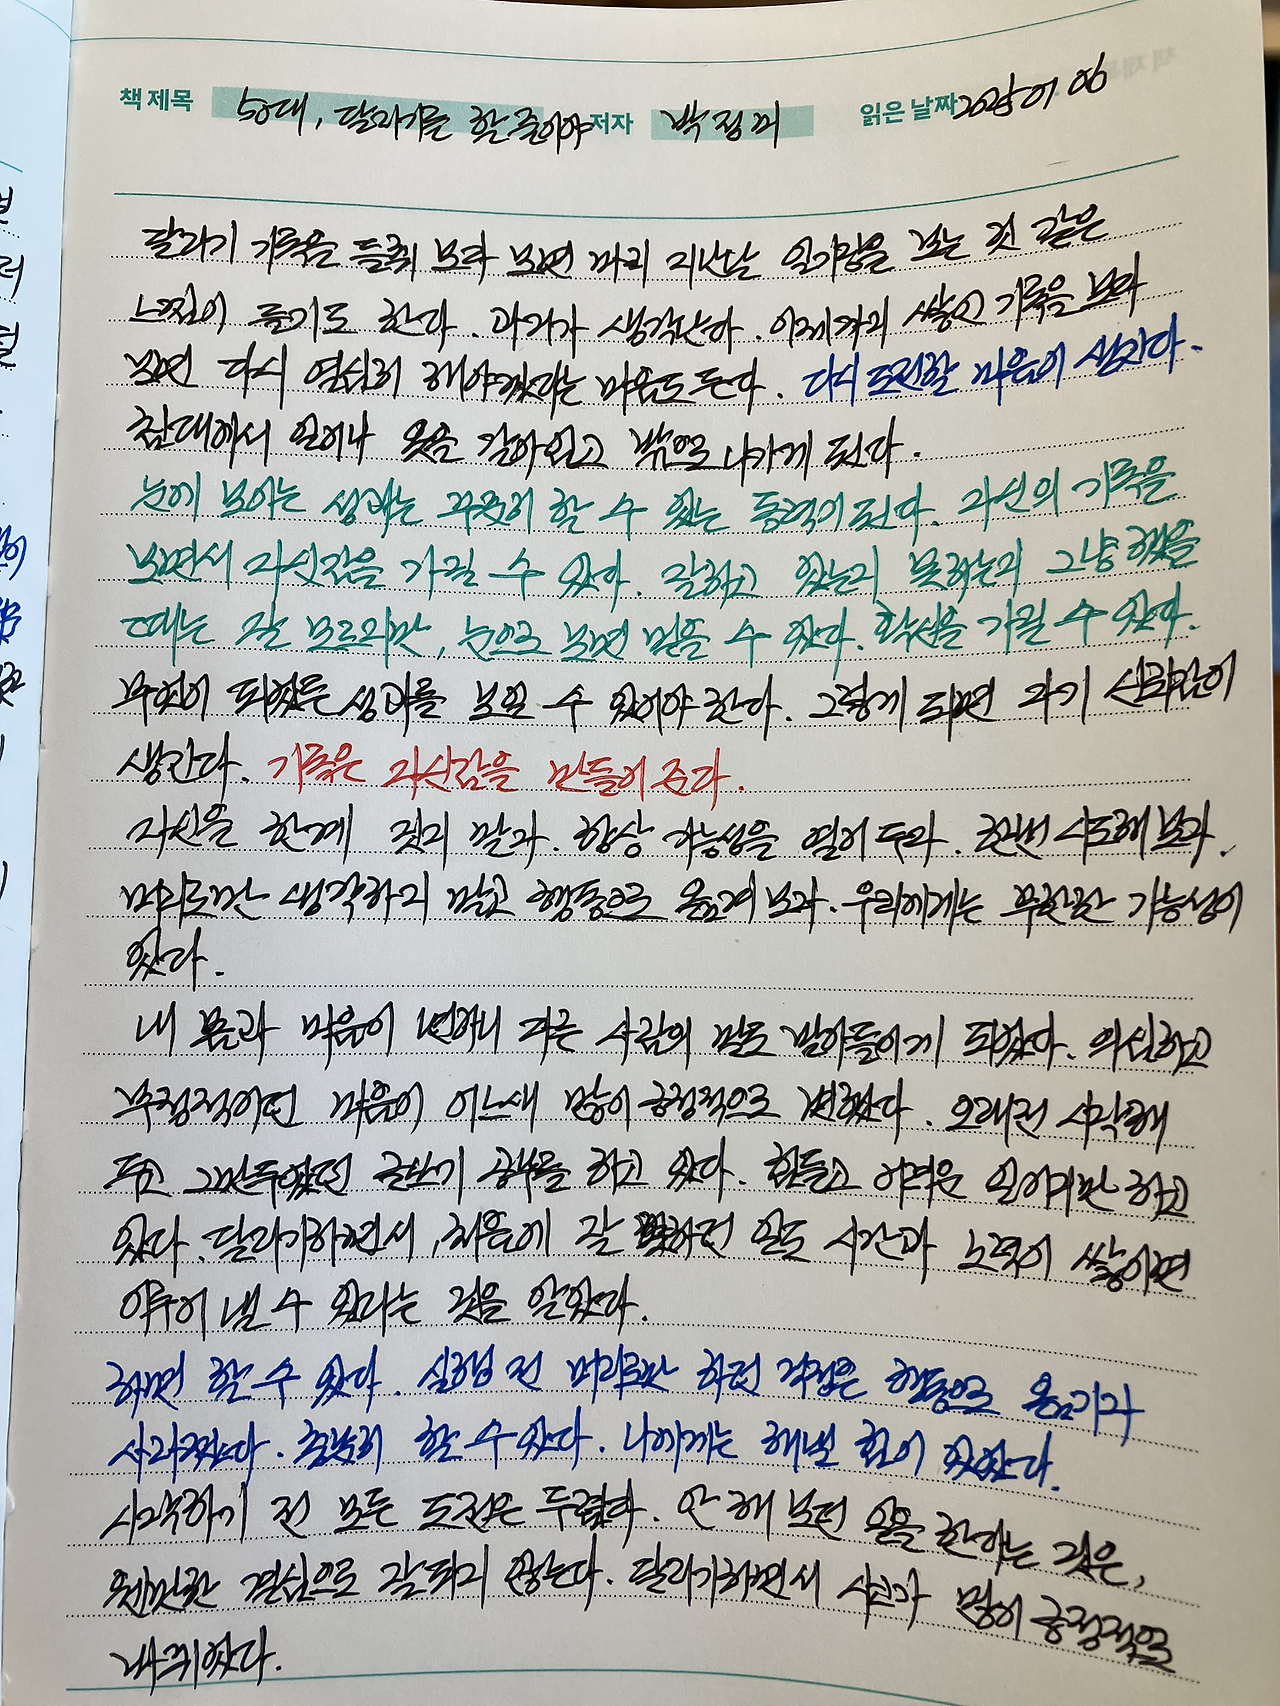 책 제목 50대, 달리기를 할 줄이야 저자 박정미 읽은 날짜 2025 01 06
달리기 기록을 들춰 보다 보면 마치 지난날 일기장을 보는 것 같은
느낌이 들기도 한다. 과거가 생각난다. 이제까지 쌓인 기록을 보다
보면 다시 열심히 해야겠다는 마음도 든다. 다시 도전할 마음이 생긴다.
침대에서 일어나 옷을 갈아입고 밖으로 나가게 된다.
눈에 보이는 성과는 꾸준히 할 수 있는 동력이 된다. 자신의 기록을
보면서 자신감을 가질 수 있다. 잘하고 있는지 못하는지 그냥 했을
때는 잘 모르지만, 눈으로 보면 믿을 수 있다. 확신을 가질 수 있다.
무엇이 되었든 성과를 보일 수 있어야 한다. 그렇게 되면 자기 신뢰감이
생긴다. 기록은 자신감을 만들어 준다.
자신을 한계 짓지 말자. 항상 가능성을 열어 두자. 한번 시도해 보자.
머리로만 생각하지 말고 행동으로 옮겨 보자. 우리에게는 무한한 가능성이
있다.
내 몸과 마음이 변하니 다른 사람의 말도 받아들이게 되었다. 의심하고
부정적이던 마음이 어느새 많이 긍정적으로 변했다. 오래전 시작해
두고 그만두었던 글쓰기 공부를 하고 있다. 힘들고 어려운 일이지만 하고
있다. 달리기하면서, 처음에 잘 못하던 일도 시간과 노력이 쌓이면
이루어 낼 수 있다는 것을 알았다.
하면 할 수 있다. 실행 전 머리로만 하던 걱정은 행동으로 옮기자
사라졌다. 충분히 할 수 있다. 나에게는 해낼 힘이 있었다.
시작하기 전 모든 도전은 두렵다. 안 해 보던 일을 한다는 것은,
웬만한 결심으로 잘 되지 않는다. 달리기하면서 사고가 많이 긍정적으로
바뀌었다.